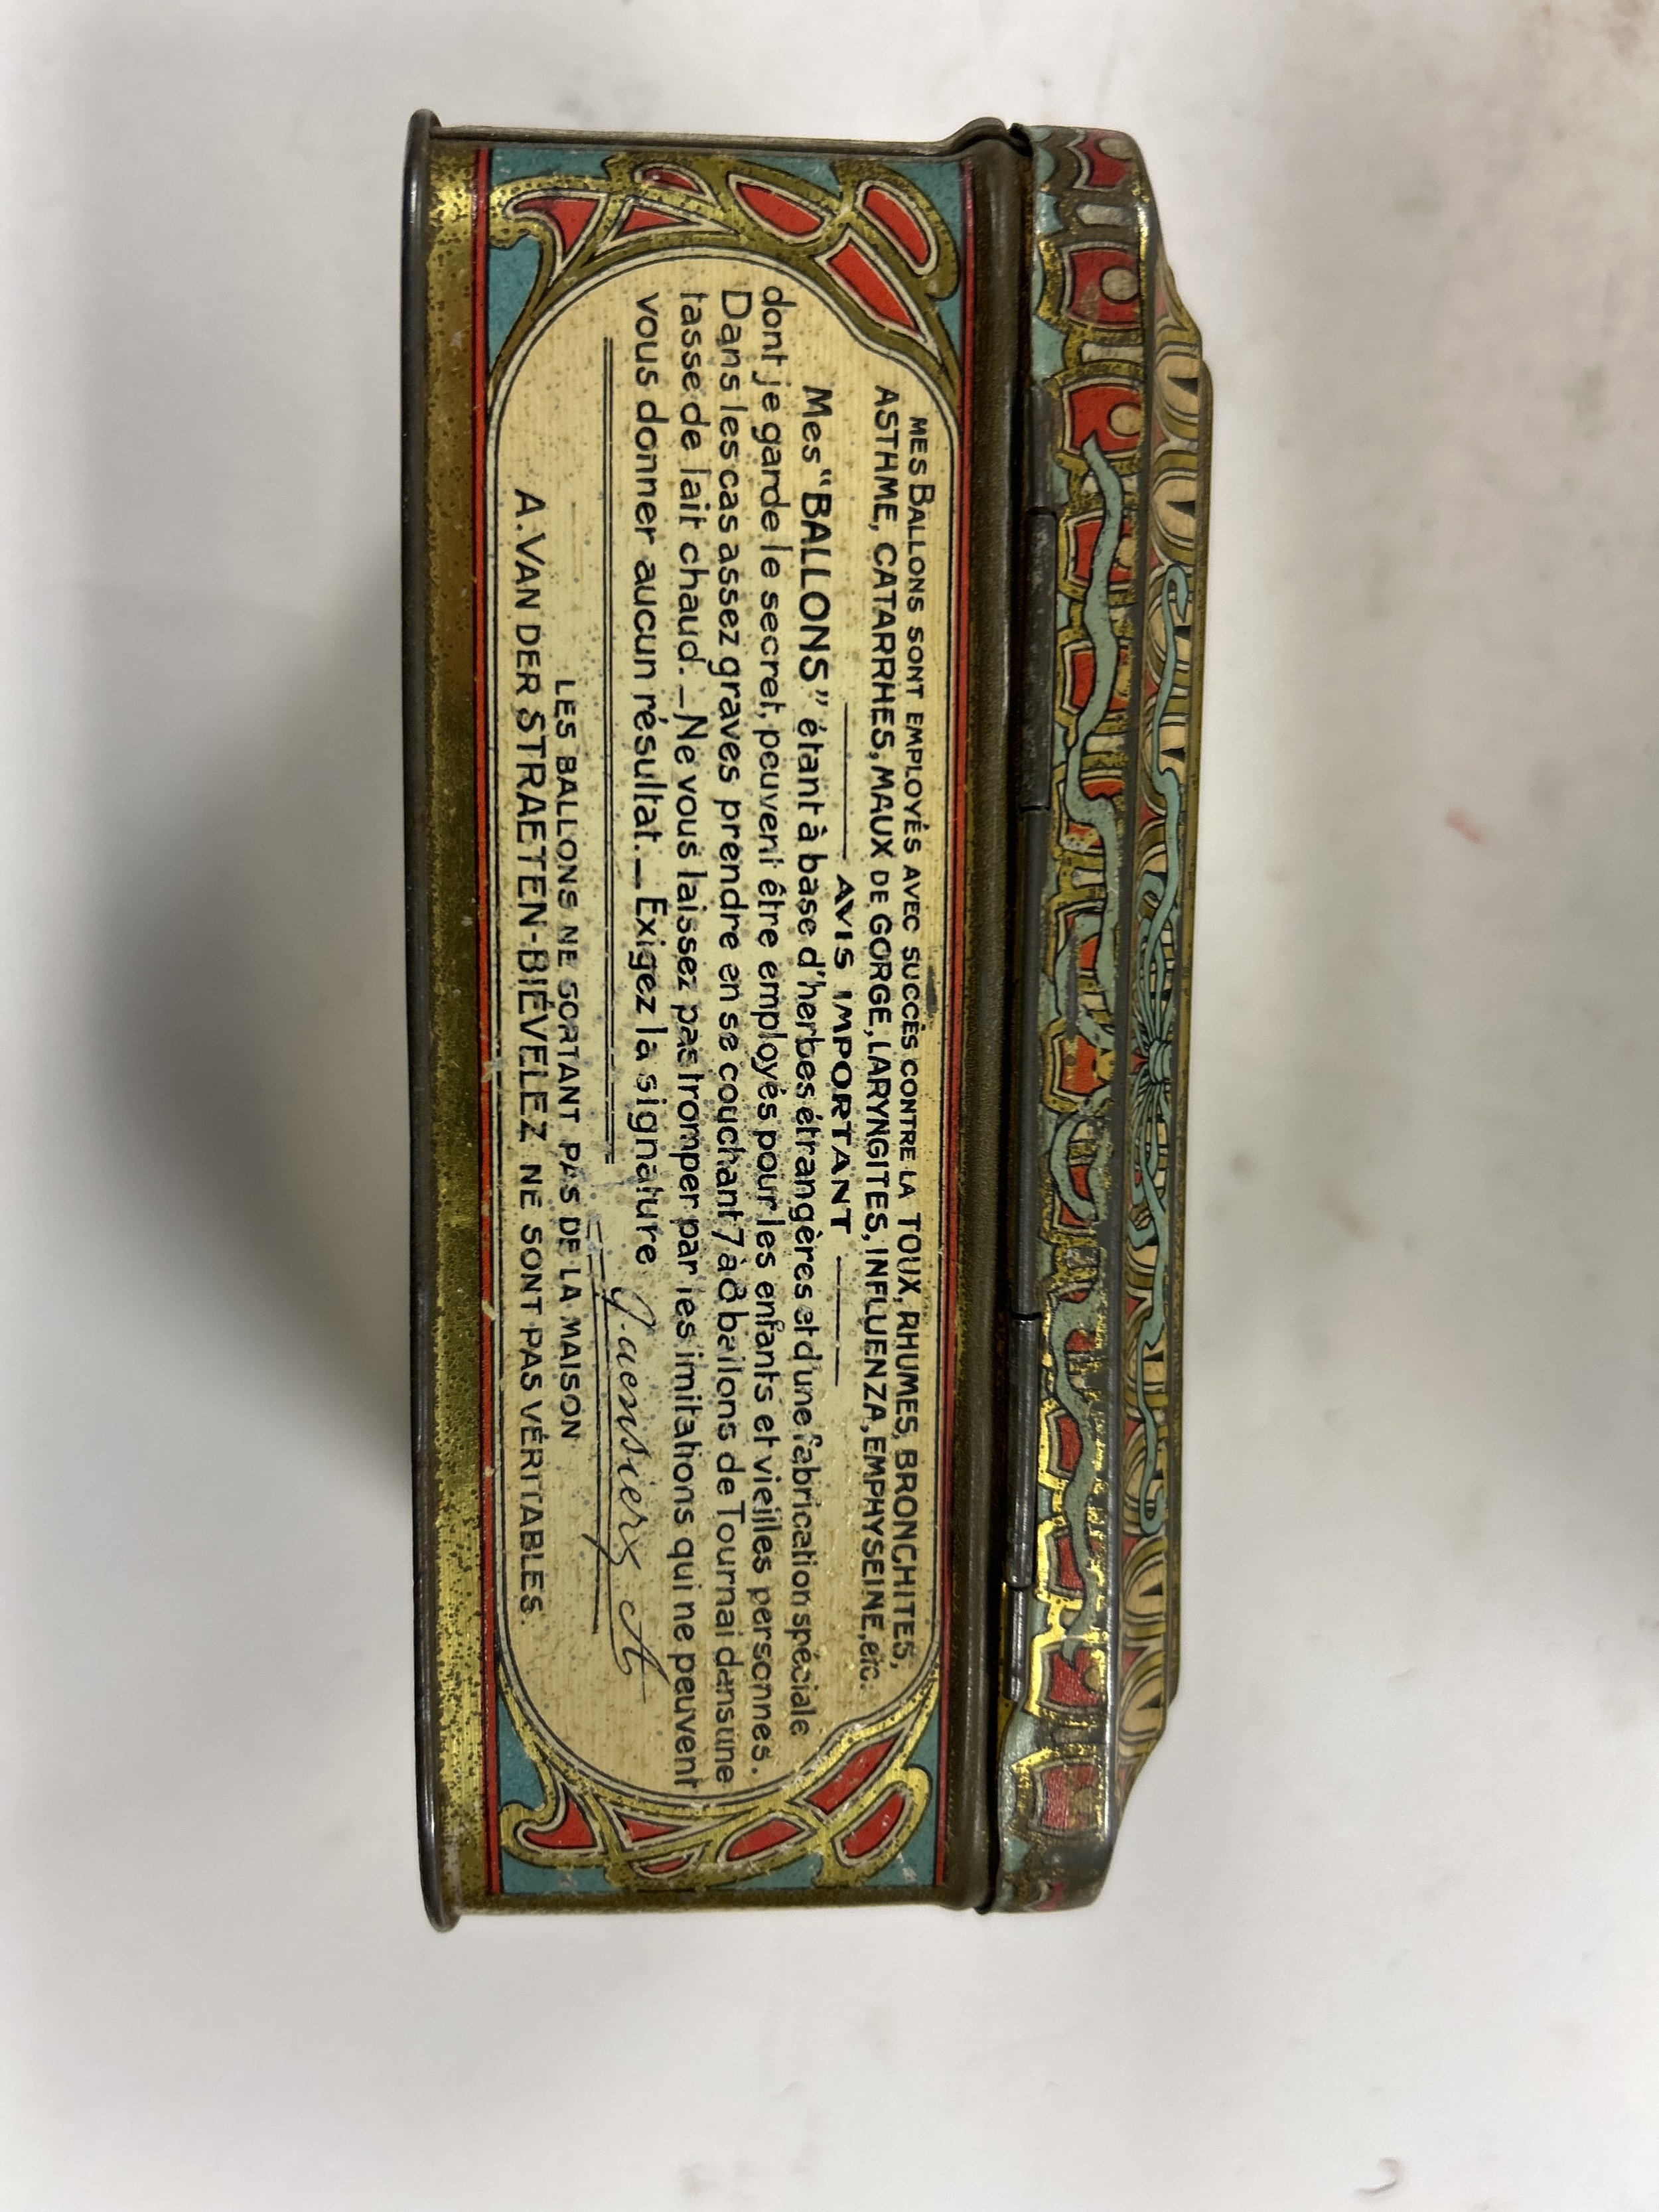 MES BALLONS SONT EMPLOYÉS AVEC SUCCÈS CONTRE LA TOUX, RHUMES, BRONCHITES,
ASTHME, CATARRHES, MAUX DE GORGE, LARYNGITES, INFLUENZA, EMPHYSEINE, etc.
AVIS IMPORTANT
Mes "BALLONS" étant à base d'herbes étrangères et d'une fabrication spéciale
dont je garde le secret, peuvent être employés pour les enfants et vieilles personnes.
Dans les cas assez graves prendre en se couchant 7 à 8 ballons de Tournai dans une
tasse de lait chaud. — Ne vous laissez pas tromper par les imitations qui ne peuvent
vous donner aucun résultat. — Exigez la signature
LES BALLONS NE SORTANT PAS DE LA MAISON
A. VAN DER STRAETEN-BIÉVELEZ NE SONT PAS VÉRITABLES.